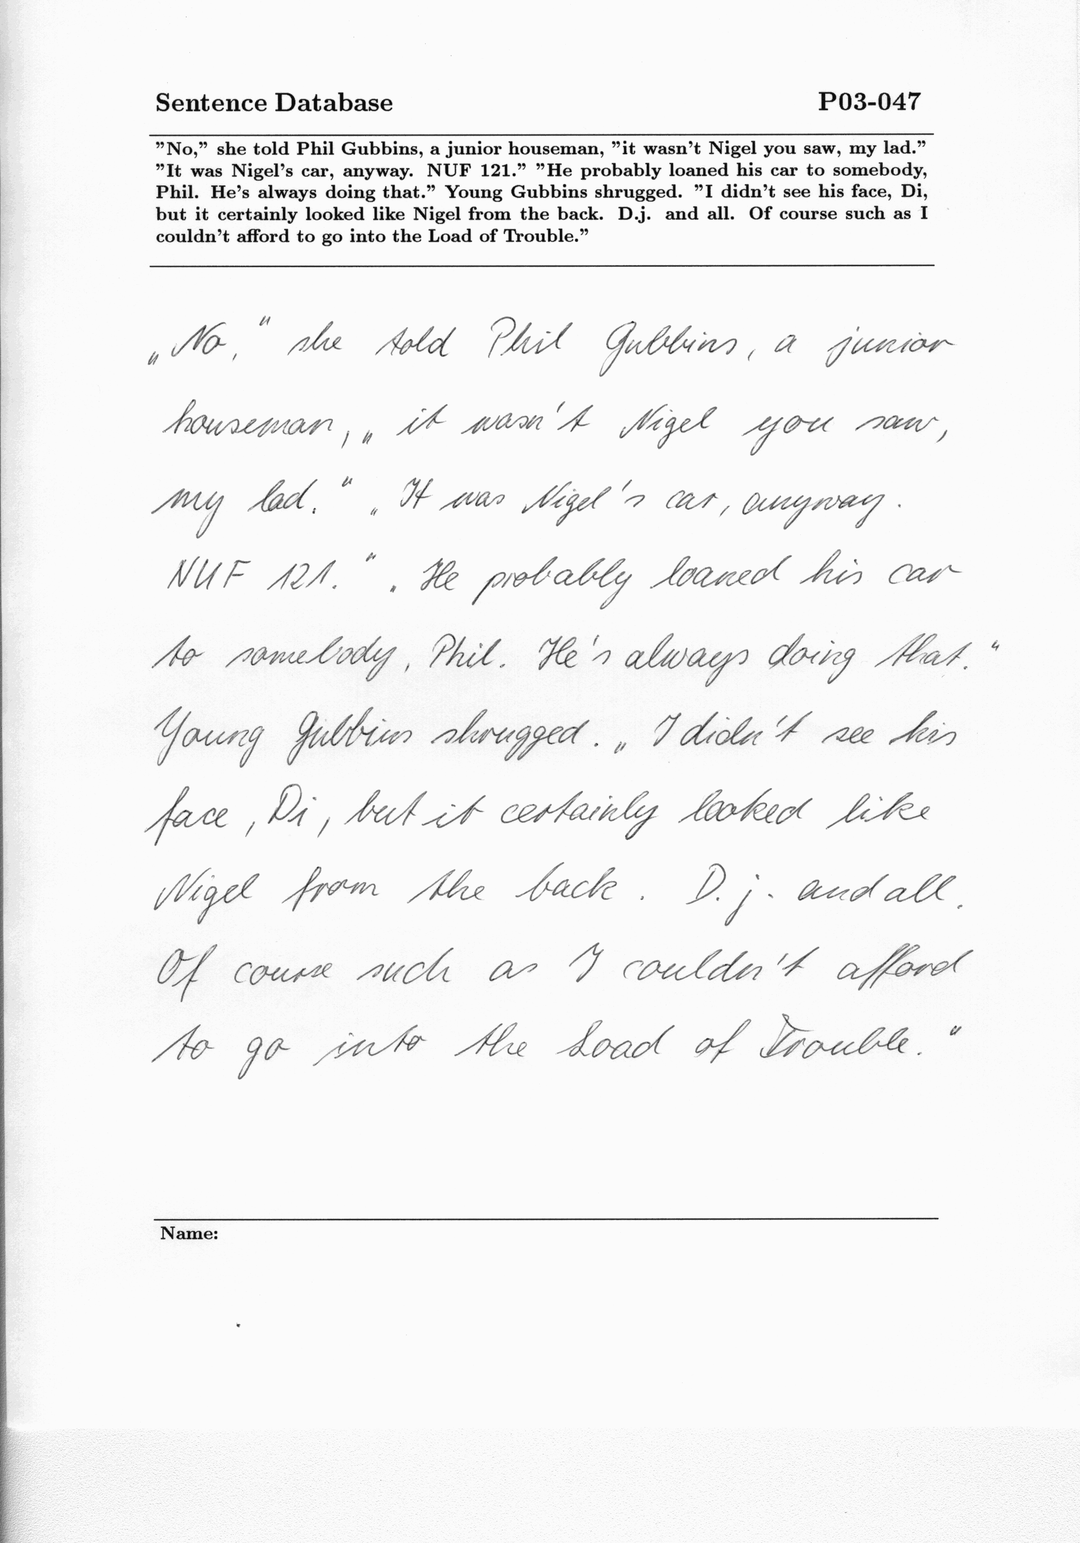 Sentence Database P03-047
"No," she told Phil Gubbins, a junior houseman, "it wasn't Nigel you saw, my lad."
"It was Nigel's car, anyway. NUF 121." "He probably loaned his car to somebody,
Phil. He's always doing that." Young Gubbins shrugged. "I didn't see his face, Di,
but it certainly looked like Nigel from the back. D.j. and all. Of course such as I
couldn't afford to go into the Load of Trouble."
„No," she told Phil Gubbins, a junior
houseman, „it wasn't Nigel you saw,
my lad." „It was Nigel's car, anyway.
NUF 121." „He probably loaned his car
to somebody, Phil. He's always doing that."
Young Gubbins shrugged. „I didn't see his
face, Di, but it certainly looked like
Nigel from the back. D.j. and all.
Of course such as I couldn't afford
to go into the Load of Trouble."
Name: